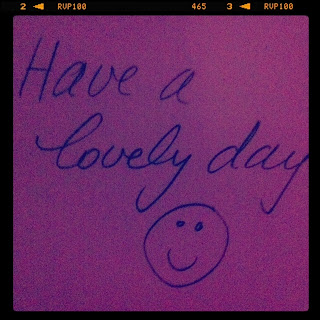 2 ◄ RVP100 465 3 ◄ RVP100
Have a
lovely day